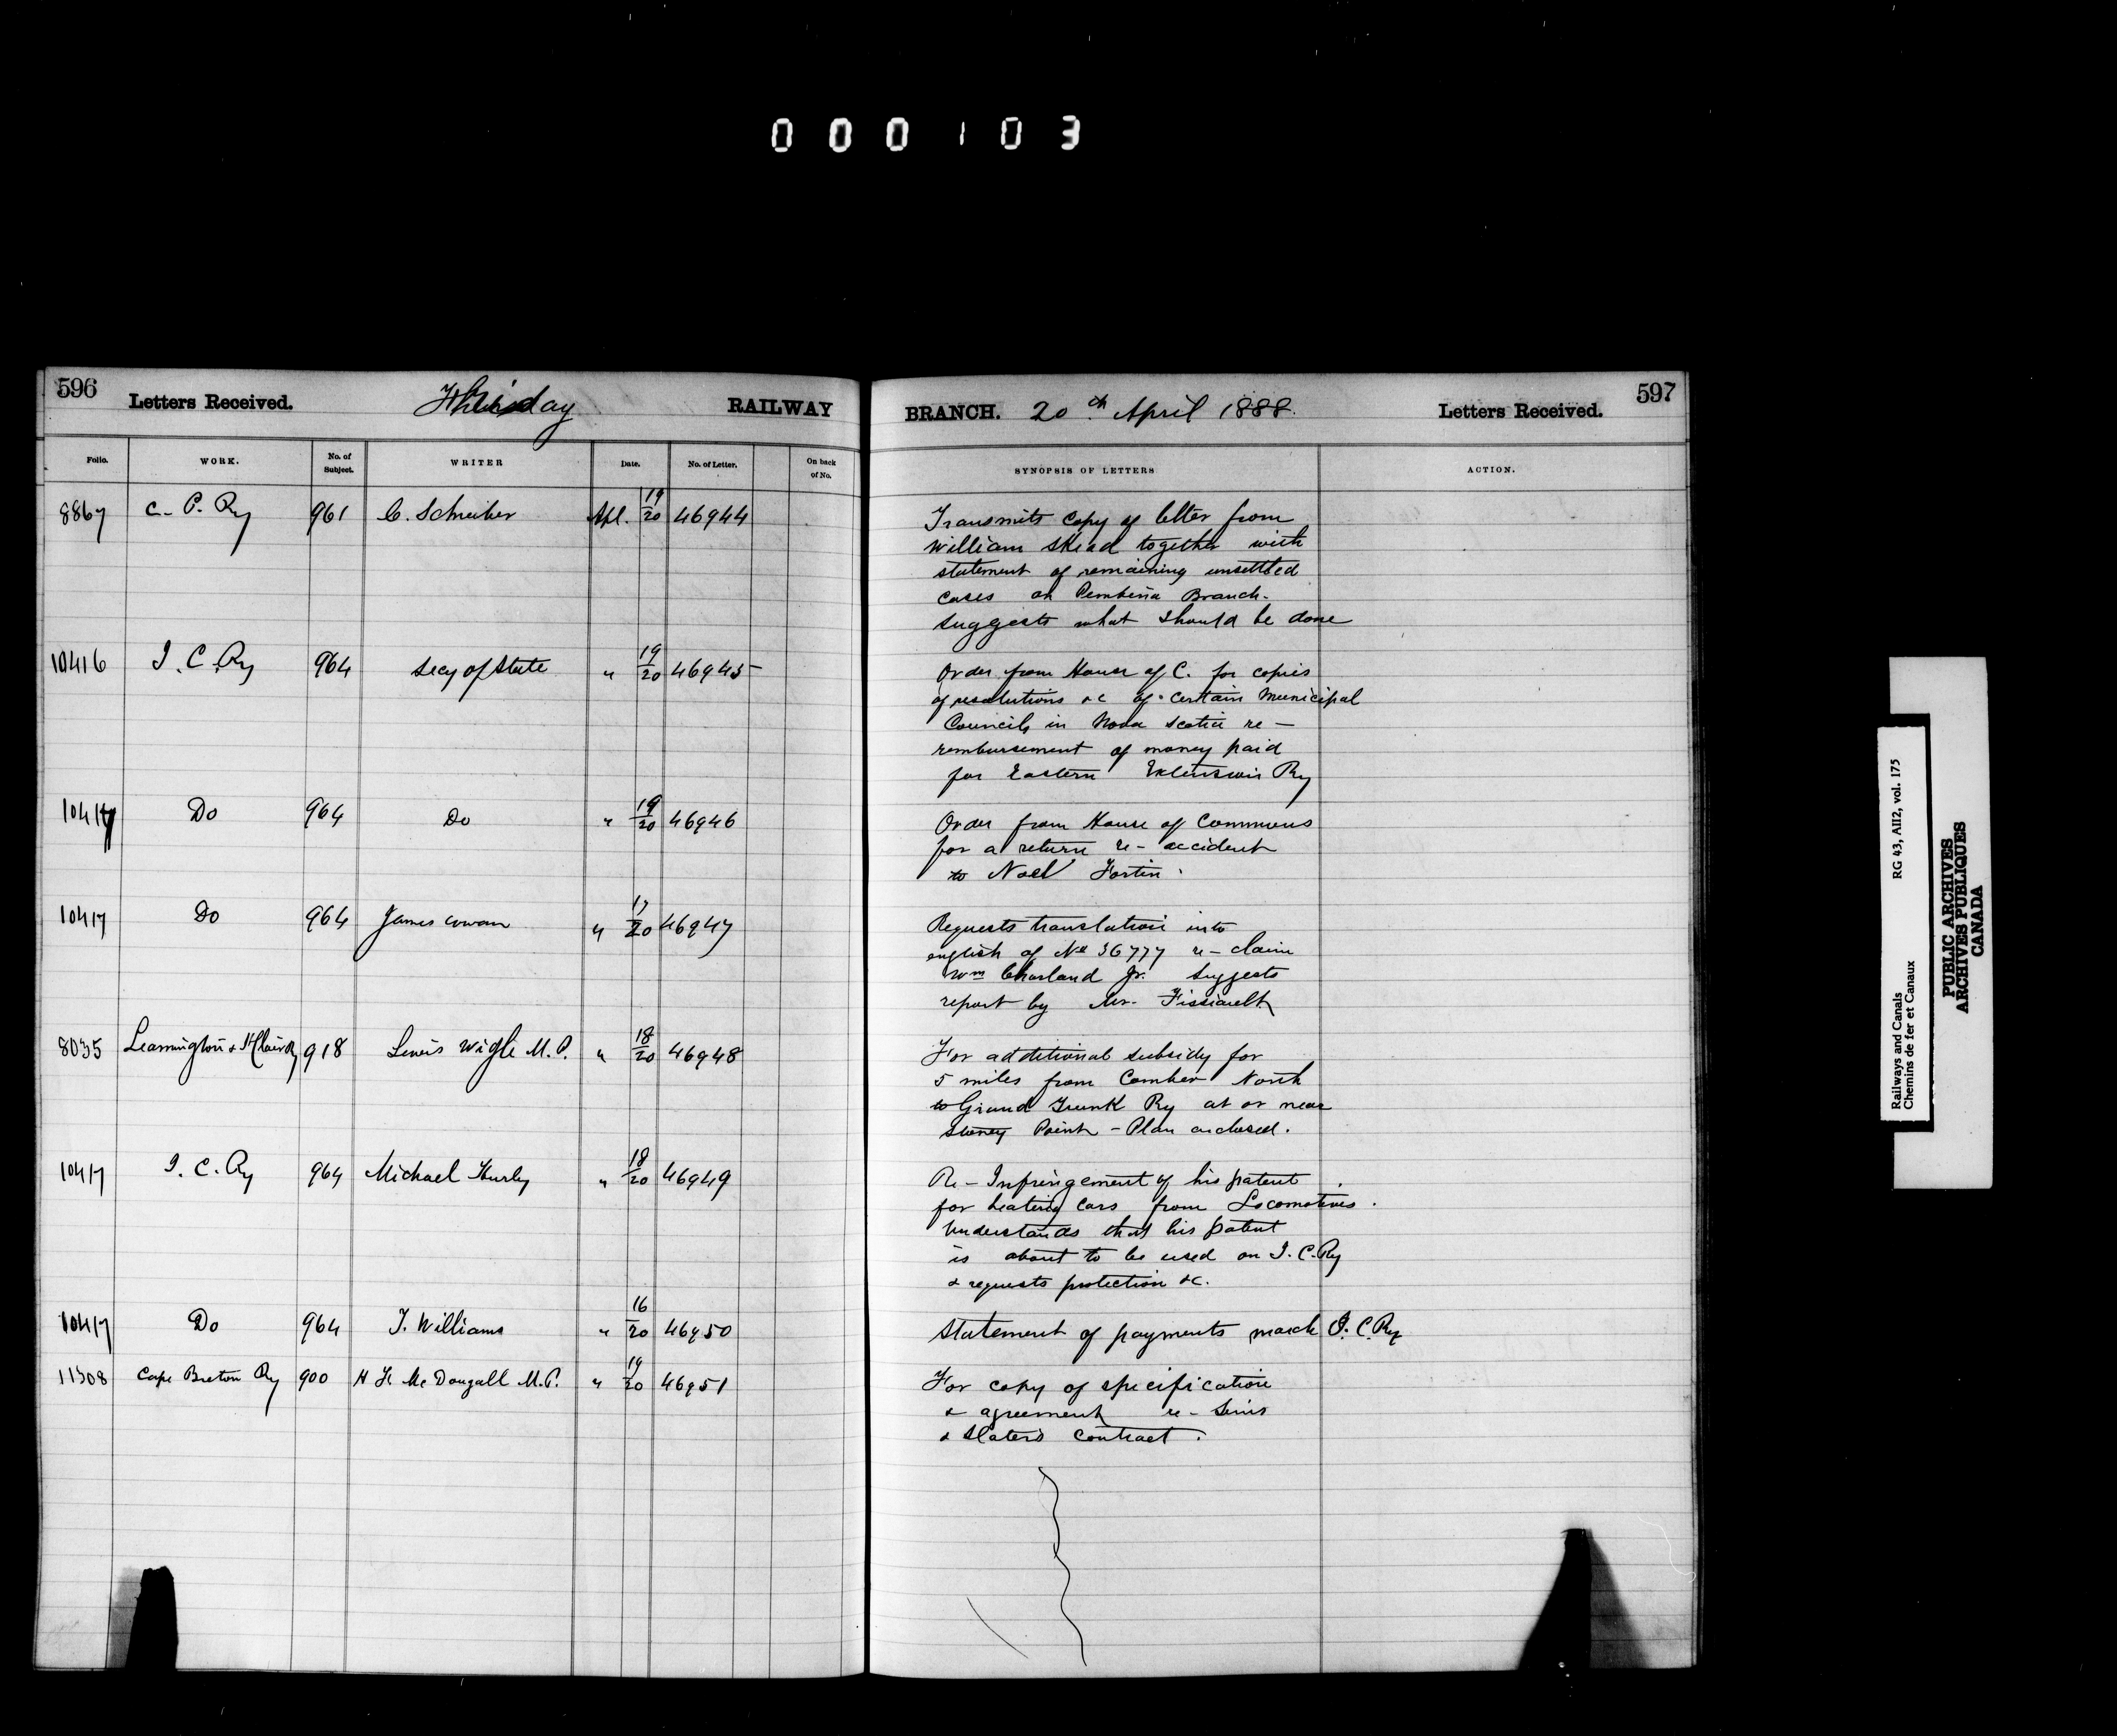 000103
596 Letters Received. Friday RAILWAY
BRANCH. 20th April 1888. Letters Received. 597
Folio. WORK. No. of Subject. WRITER Date. No. of Letter. On back of No.
SYNOPSIS OF LETTERS ACTION.
8867 C. P. Ry 961 C. Schreiber Apl. 19/20 46944
Transmits copy of letter from
William Skead together with
statement of remaining unsettled
cases on Pembina Branch.
Suggests what should be done
10416 I. C. Ry 964 Secy of State " 19/20 46945
Order from House of C. for copies
of resolutions &c of certain Municipal
Councils in Nova Scotia re-
rembursement of money paid
for Eastern Extension Ry
10417 Do 964 Do " 19/20 46946
Order from House of Commons
for a return re- accident
to Noel Fortin.
10417 Do 964 James Cowan " 17/20 46947
Requests translation into
english of No 36777 re- claim
Wm Charland Jr. Suggests
report by Mr.
8035 Leamington & St Clair Ry 918 Lewis Wigle M. P. " 18/20 46948
For additional subsidy for
5 miles from Comber North
to Grand Trunk Ry at or near
Stoney Point - Plan enclosed.
10417 I. C. Ry 964 Michael Hurley " 18/20 46949
Re- Infringement of his patent
for heating cars from Locomotives.
Understands that his patent
is about to be used on I. C. Ry
& requests protection &c.
10417 Do 964 T. Williams " 16/20 46950
Statement of payments march I. C. Ry
11308 Cape Breton Ry 900 H F. McDougall M. P. " 19/20 46951
For copy of specification
& agreement re- Sims
& Slaters contract.
Railways and Canals RG 43, AII2, vol. 175
Chemins de fer et Canaux
PUBLIC ARCHIVES
ARCHIVES PUBLIQUES
CANADA